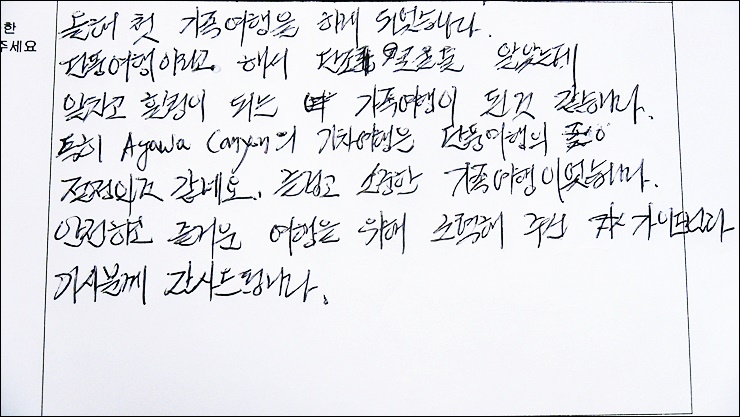 한
주세요
올해 첫 가족여행을 하게 되었습니다.
단풍여행이라고 해서 단조 알았는데
알차고 힐링이 되는 가족여행이 된것 같습니다.
특히 Agawa Canyon의 기차여행은 단풍여행의
절정인것 같네요. 즐겁고 소중한 가족여행이었습니다.
안전하고 즐거운 여행을 위해 노력해 주신 가이드님과
기사분께 감사드립니다.